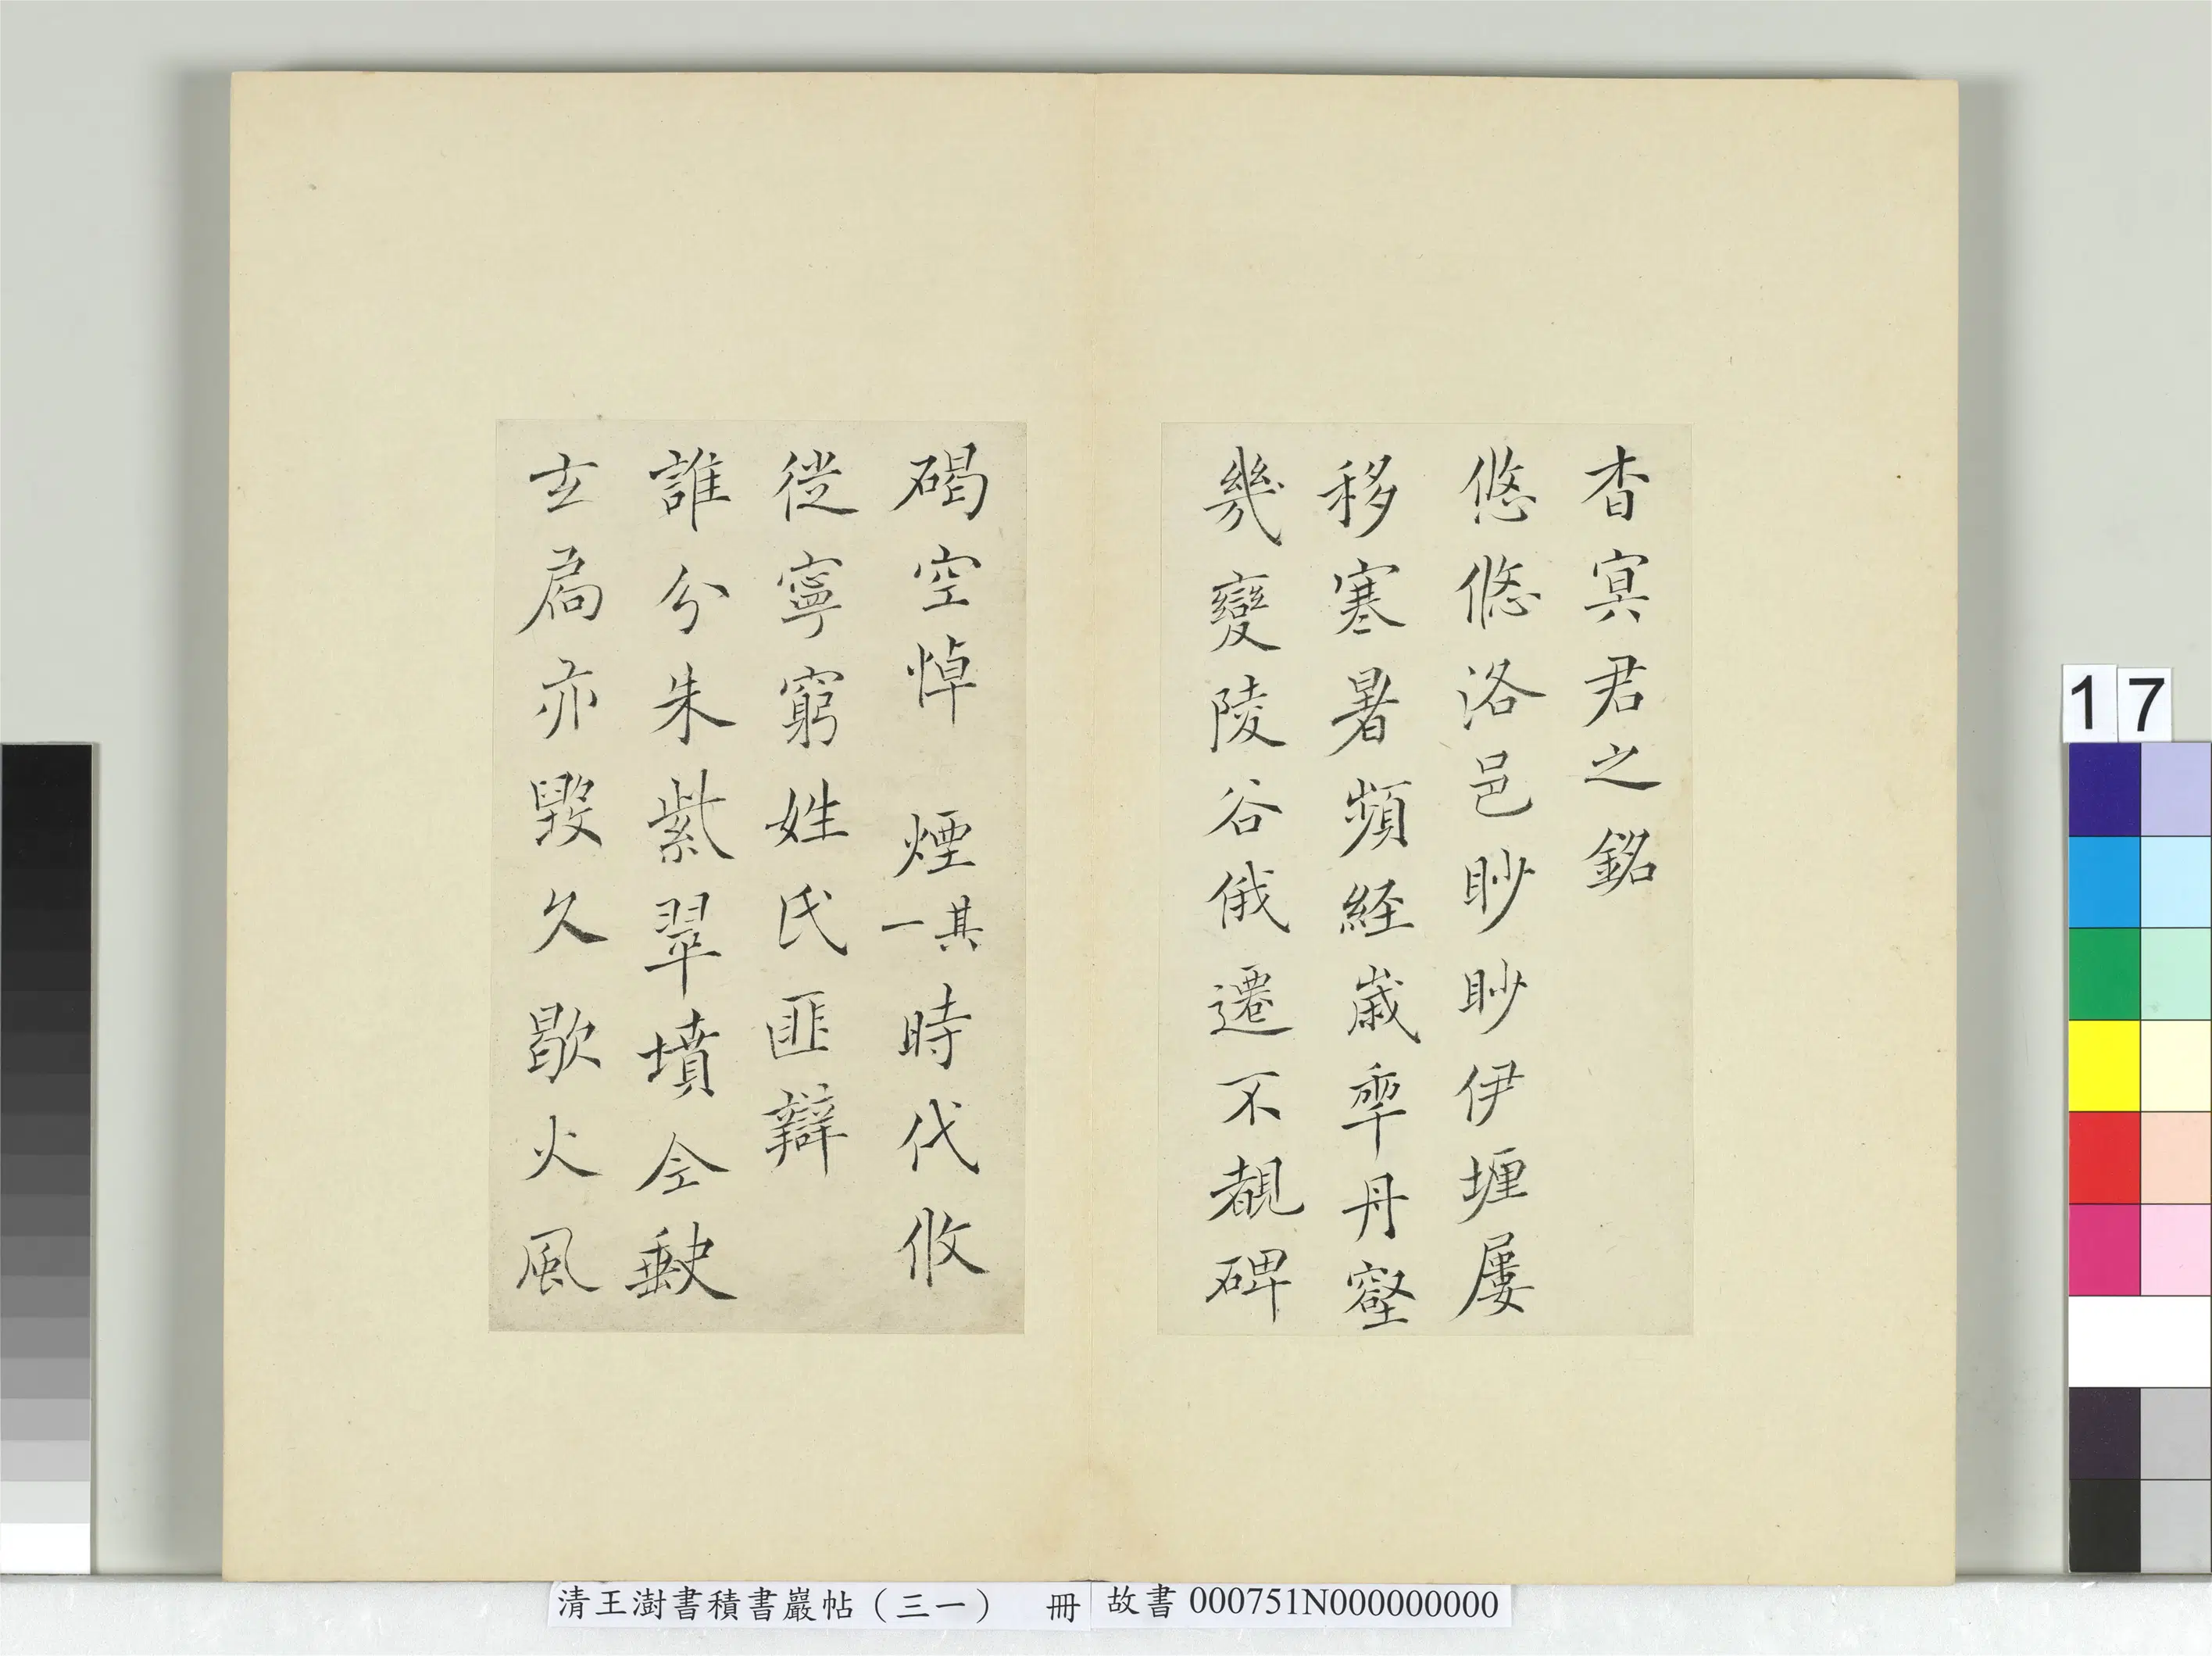 杳冥君之銘
悠悠洛邑眇眇伊壥屢
移寒暑頻經歲年丹壑
幾變陵谷俄遷不覩碑
碣空悼 煙其一時代攸
徙寧窮姓氏匪辯
誰分朱紫翠墳全缺
玄扃亦毀久歇火風
17
清王澍書積書巖帖(三一) 冊
故書 000751N000000000